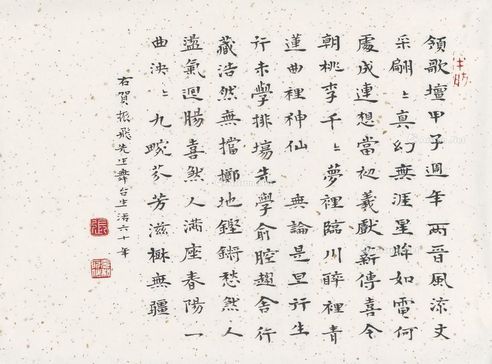 領歌壇甲子週年 兩晉風流文
采翩〻真幻無涯星眸如電何
處成連想當初羲獻薪傳喜今
朝桃李千〻夢裡臨川醉裡青
蓮曲裡神仙 無論是旦行生
行未學排場先學俞腔趨舍行
藏浩然無擋擲地鏗鏘愁煞人
盪氣迴腸喜煞人滿座春陽一
曲泱〻九畹芬芳滋楙無疆
右賀振飛先生舞台生活六十年
張